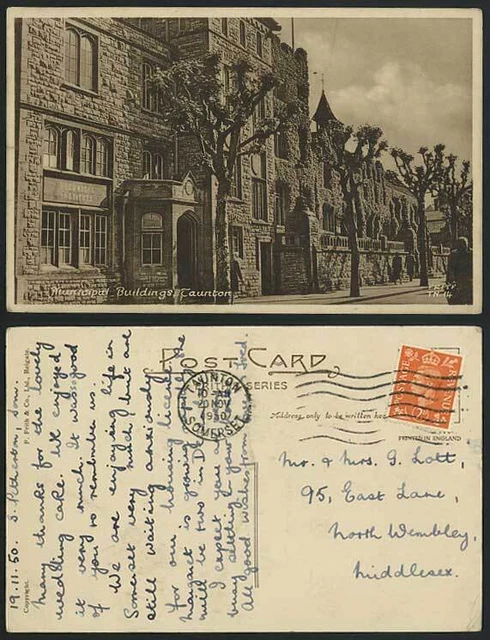 Municipal Buildings, Taunton
TN. 14
POST CARD
BRITISH SERIES
Address only to be written here
PRINTED IN ENGLAND
F. Frith & Co., Ltd., Reigate.
Copyright.
TAUNTON
NOV
1950
SOMERSET
POSTAGE
19.11.50. S. Petherton, Som.
Many thanks for the lovely
wedding cake. We enjoyed
it very much. It was good
of you to remember us.
We are enjoying life in
Somerset very much but are
still waiting anxiously
for our housing licence.
Margaret is growing
will be two in
I expect you are
busy settling
All good wishes from
Mr. & Mrs. G. Lott,
95, East Lane,
North Wembley,
Middlesex.